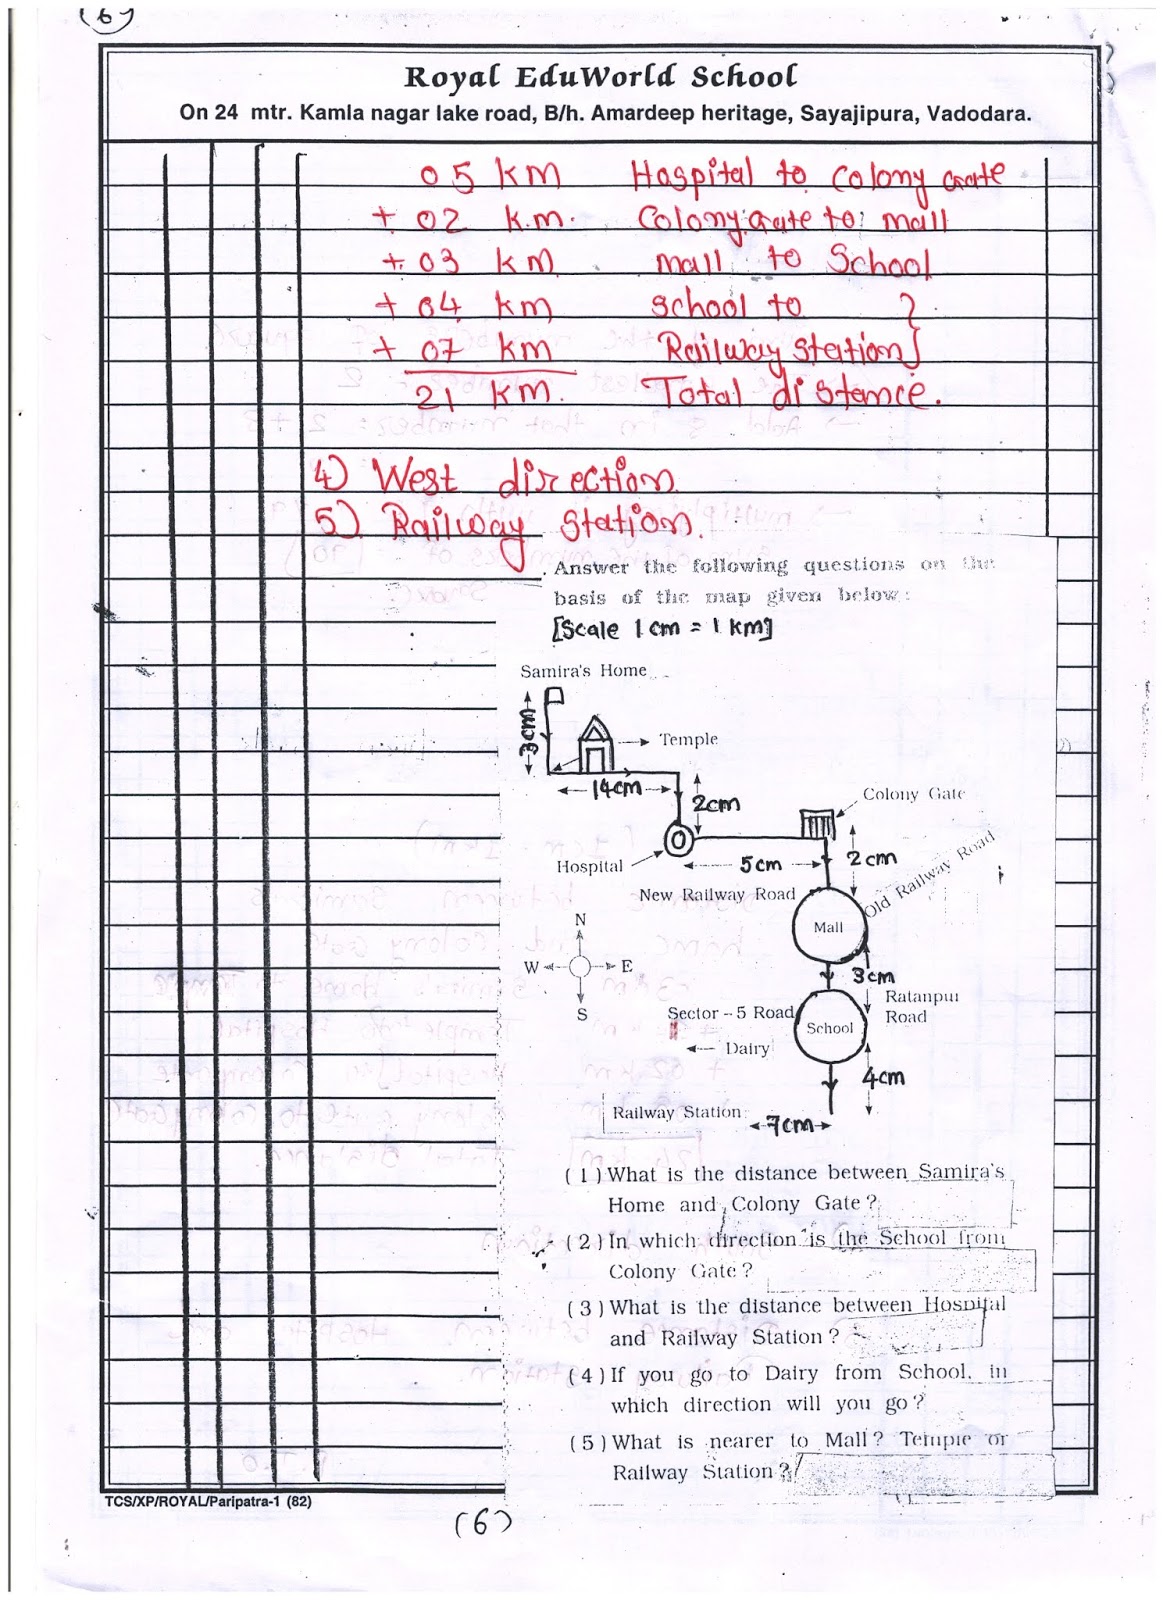 (6)
Royal EduWorld School
On 24 mtr. Kamla nagar lake road, B/h. Amardeep heritage, Sayajipura, Vadodara.
05 KM Hospital to Colony Gate
+ 02 K.m. Colony Gate to mall
+ 03 KM mall to School
+ 04 KM School to
+ 07 KM Railway Station
21 KM. Total distance.
4) West direction
5) Railway Station.
Answer the following questions on the
basis of the map given below:
[Scale 1 cm = 1 km]
Samira's Home
3cm
Temple
14cm
2cm
Colony Gate
Hospital
5cm
2cm
Old Railway Road
New Railway Road
Mall
N
W E
S
3cm
Ratanpur
Road
Sector - 5 Road
School
Dairy
4cm
Railway Station
7cm
(1) What is the distance between Samira's
Home and Colony Gate?
(2) In which direction is the School from
Colony Gate?
(3) What is the distance between Hospital
and Railway Station?
(4) If you go to Dairy from School, in
which direction will you go?
(5) What is nearer to Mall? Temple or
Railway Station?
TCS/XP/ROYAL/Paripatra-1 (82)
(6)